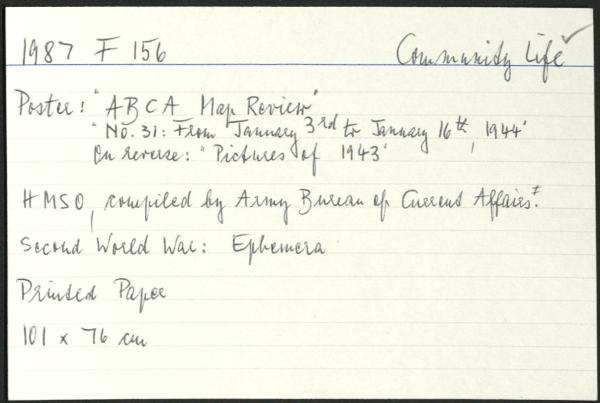 1987 F 156 Community Life ✓
Poster: "ABCA Map Review"
"No. 31: From January 3rd to January 16th, 1944"
On reverse: "Pictures of 1943"
HMSO, compiled by Army Bureau of Current Affairs.‡
Second World War: Ephemera
Printed Paper
101 x 76 cm